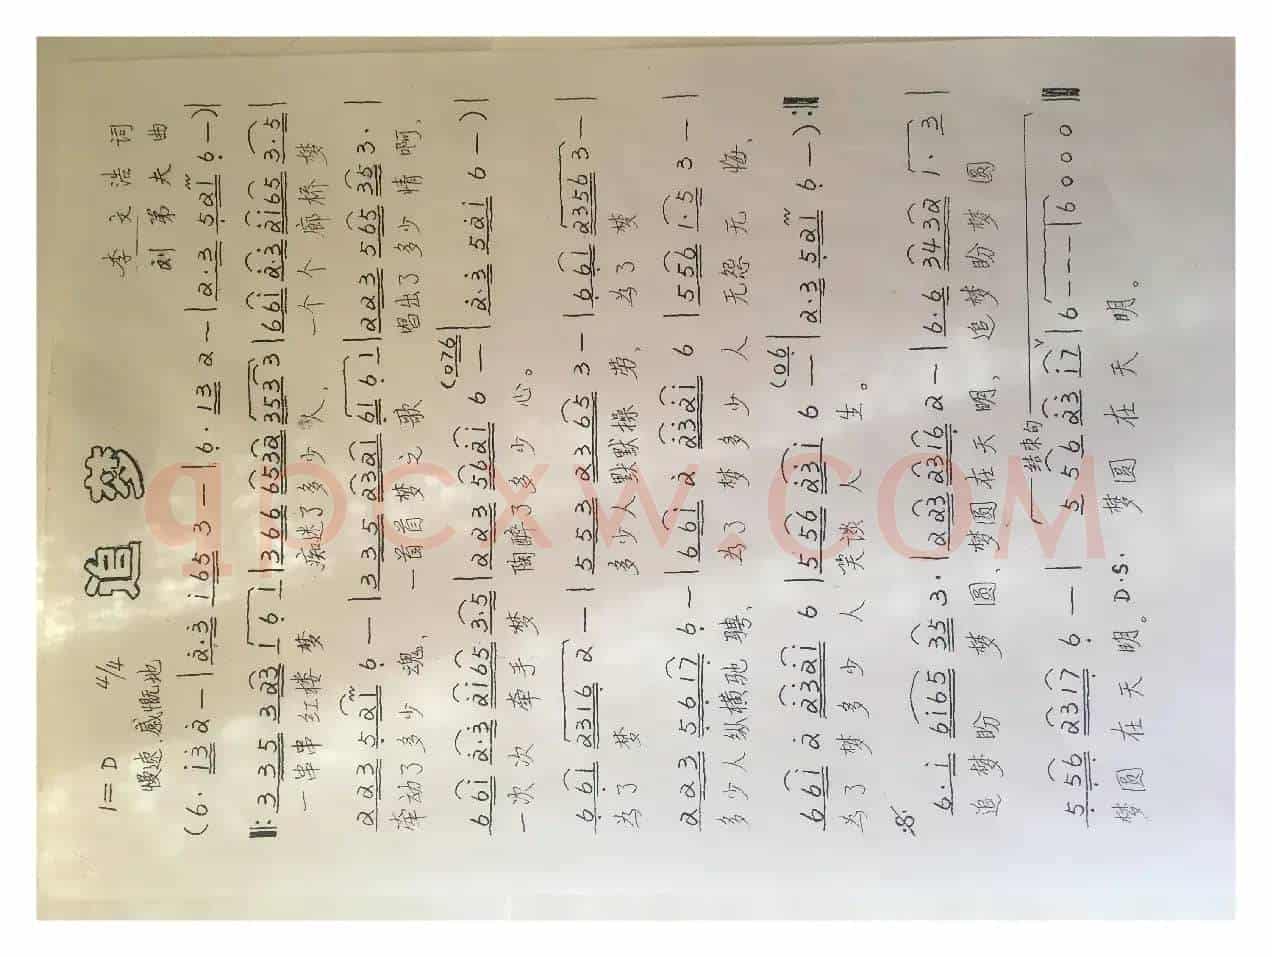 追梦
1=D 4/4
慢速.感慨地
李文浩 词
刘第夫 曲
(6· i3 2 - | 2·3 i65 3 - | 6· 13 2 - | 2·3 521 6 - ) |
‖: 3 3 5 3 23 1 6 1 | 366 6532 3533 3 | 66i 2·3 2i65 3·5 |
一串串红楼梦 痴迷了多少人, 一个个廊桥梦
2 2 3 521 6 - | 3 3 5 2321 61 6 1 | 2 2 3 565 35 3· |
牵动了多少 魂, 一首首梦之歌 唱出了多少情啊,
66i 2·3 2i65 3·5 | 2 2 3 562i 6 - - (076 | 2·3 52i 6 - ) |
一次次牵手梦 陶醉了多少心。
661 2316 2 - | 5 5 3 2 3 65 3 - | 661 2356 3 - |
为了 梦 多少人默默操劳, 为了 梦
2 2 3 5617 6 - | 661 2 232i 6 | 556 1·5 3 - |
多少人纵横驰骋, 为了梦多少人 无怨无悔,
66i 2 232i 6 | 556 23i 6 - - (06 | 2·3 521 6 - ) :‖
为了梦多少人 笑谈人生。
6·i 6i65 35 3· | 223 2316 2 - | 6·6 3432 1·3 |
追梦盼 梦 圆, 梦圆在天明, 追梦盼梦圆
结束句
556 2317 6 - | 5 56 23 i7 | 6 - - - | 6 0 0 0 ‖
梦圆在天明。D.S. 梦圆在天明。
qpcxw.com